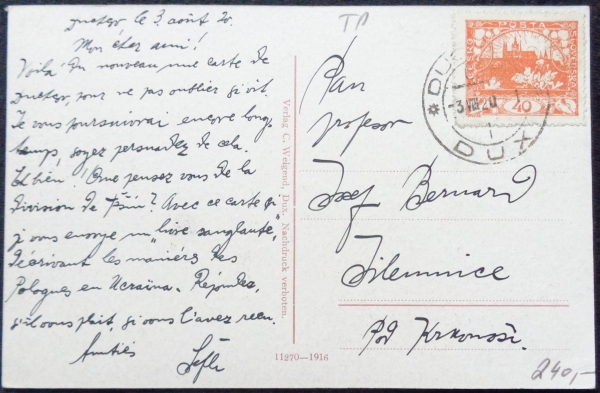 Duchcov le 3 août 20.
Mon cher ami!
Voilà! Du nouveau une carte de
Duchcov, pour ne pas oublier
Je vous poursuivrai encore long-
temps, soyez persuadez de cela.
Eh bien! Que pensez vous de la
division de Těšín? Avec ce carte
je vous envoye un "livre sanglante",
décrivant les manières des
Pologues en Ucraina. Répondez,
s'il vous plaît, si vous l'avez recu.
Amitiés
Verlag C. Weigend, Dux. Nachdruck verboten.
11270—1916
TP
POŠTA
ČESKO
SLOVENSKÁ
40
DUX
-3.VIII.20
Pan
profesor
Josef Bernard
Jilemnice
Pod Krkonoši.
240,-